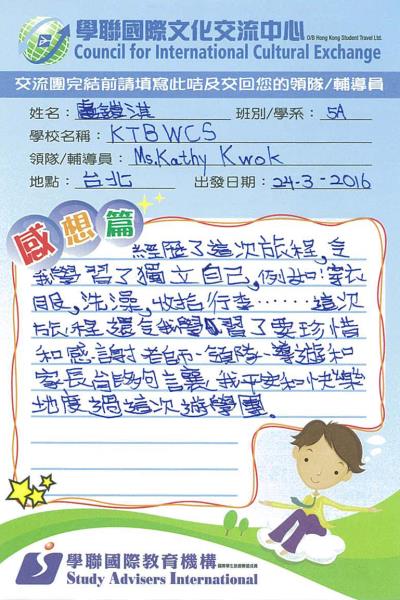 學聯國際文化交流中心 O/B Hong Kong Student Travel Ltd.
Council for International Cultural Exchange
交流團完結前請填寫此咭及交回您的領隊/輔導員
姓名： 淇 班別/學系： 5A
學校名稱： KTBWCS
領隊/輔導員： Ms.Kathy Kwok
地點： 台北 出發日期： 24-3-2016
感想篇
經歷了這次旅程，令
我學習了獨立自己，例如：穿衣
服，洗澡，收拾行李……這次
旅程還令我學習了要珍惜
和感謝老師、領隊、導遊和
家長能夠讓我平安和快樂
地度過這次遊學團。
學聯國際教育機構
Study Advisers International